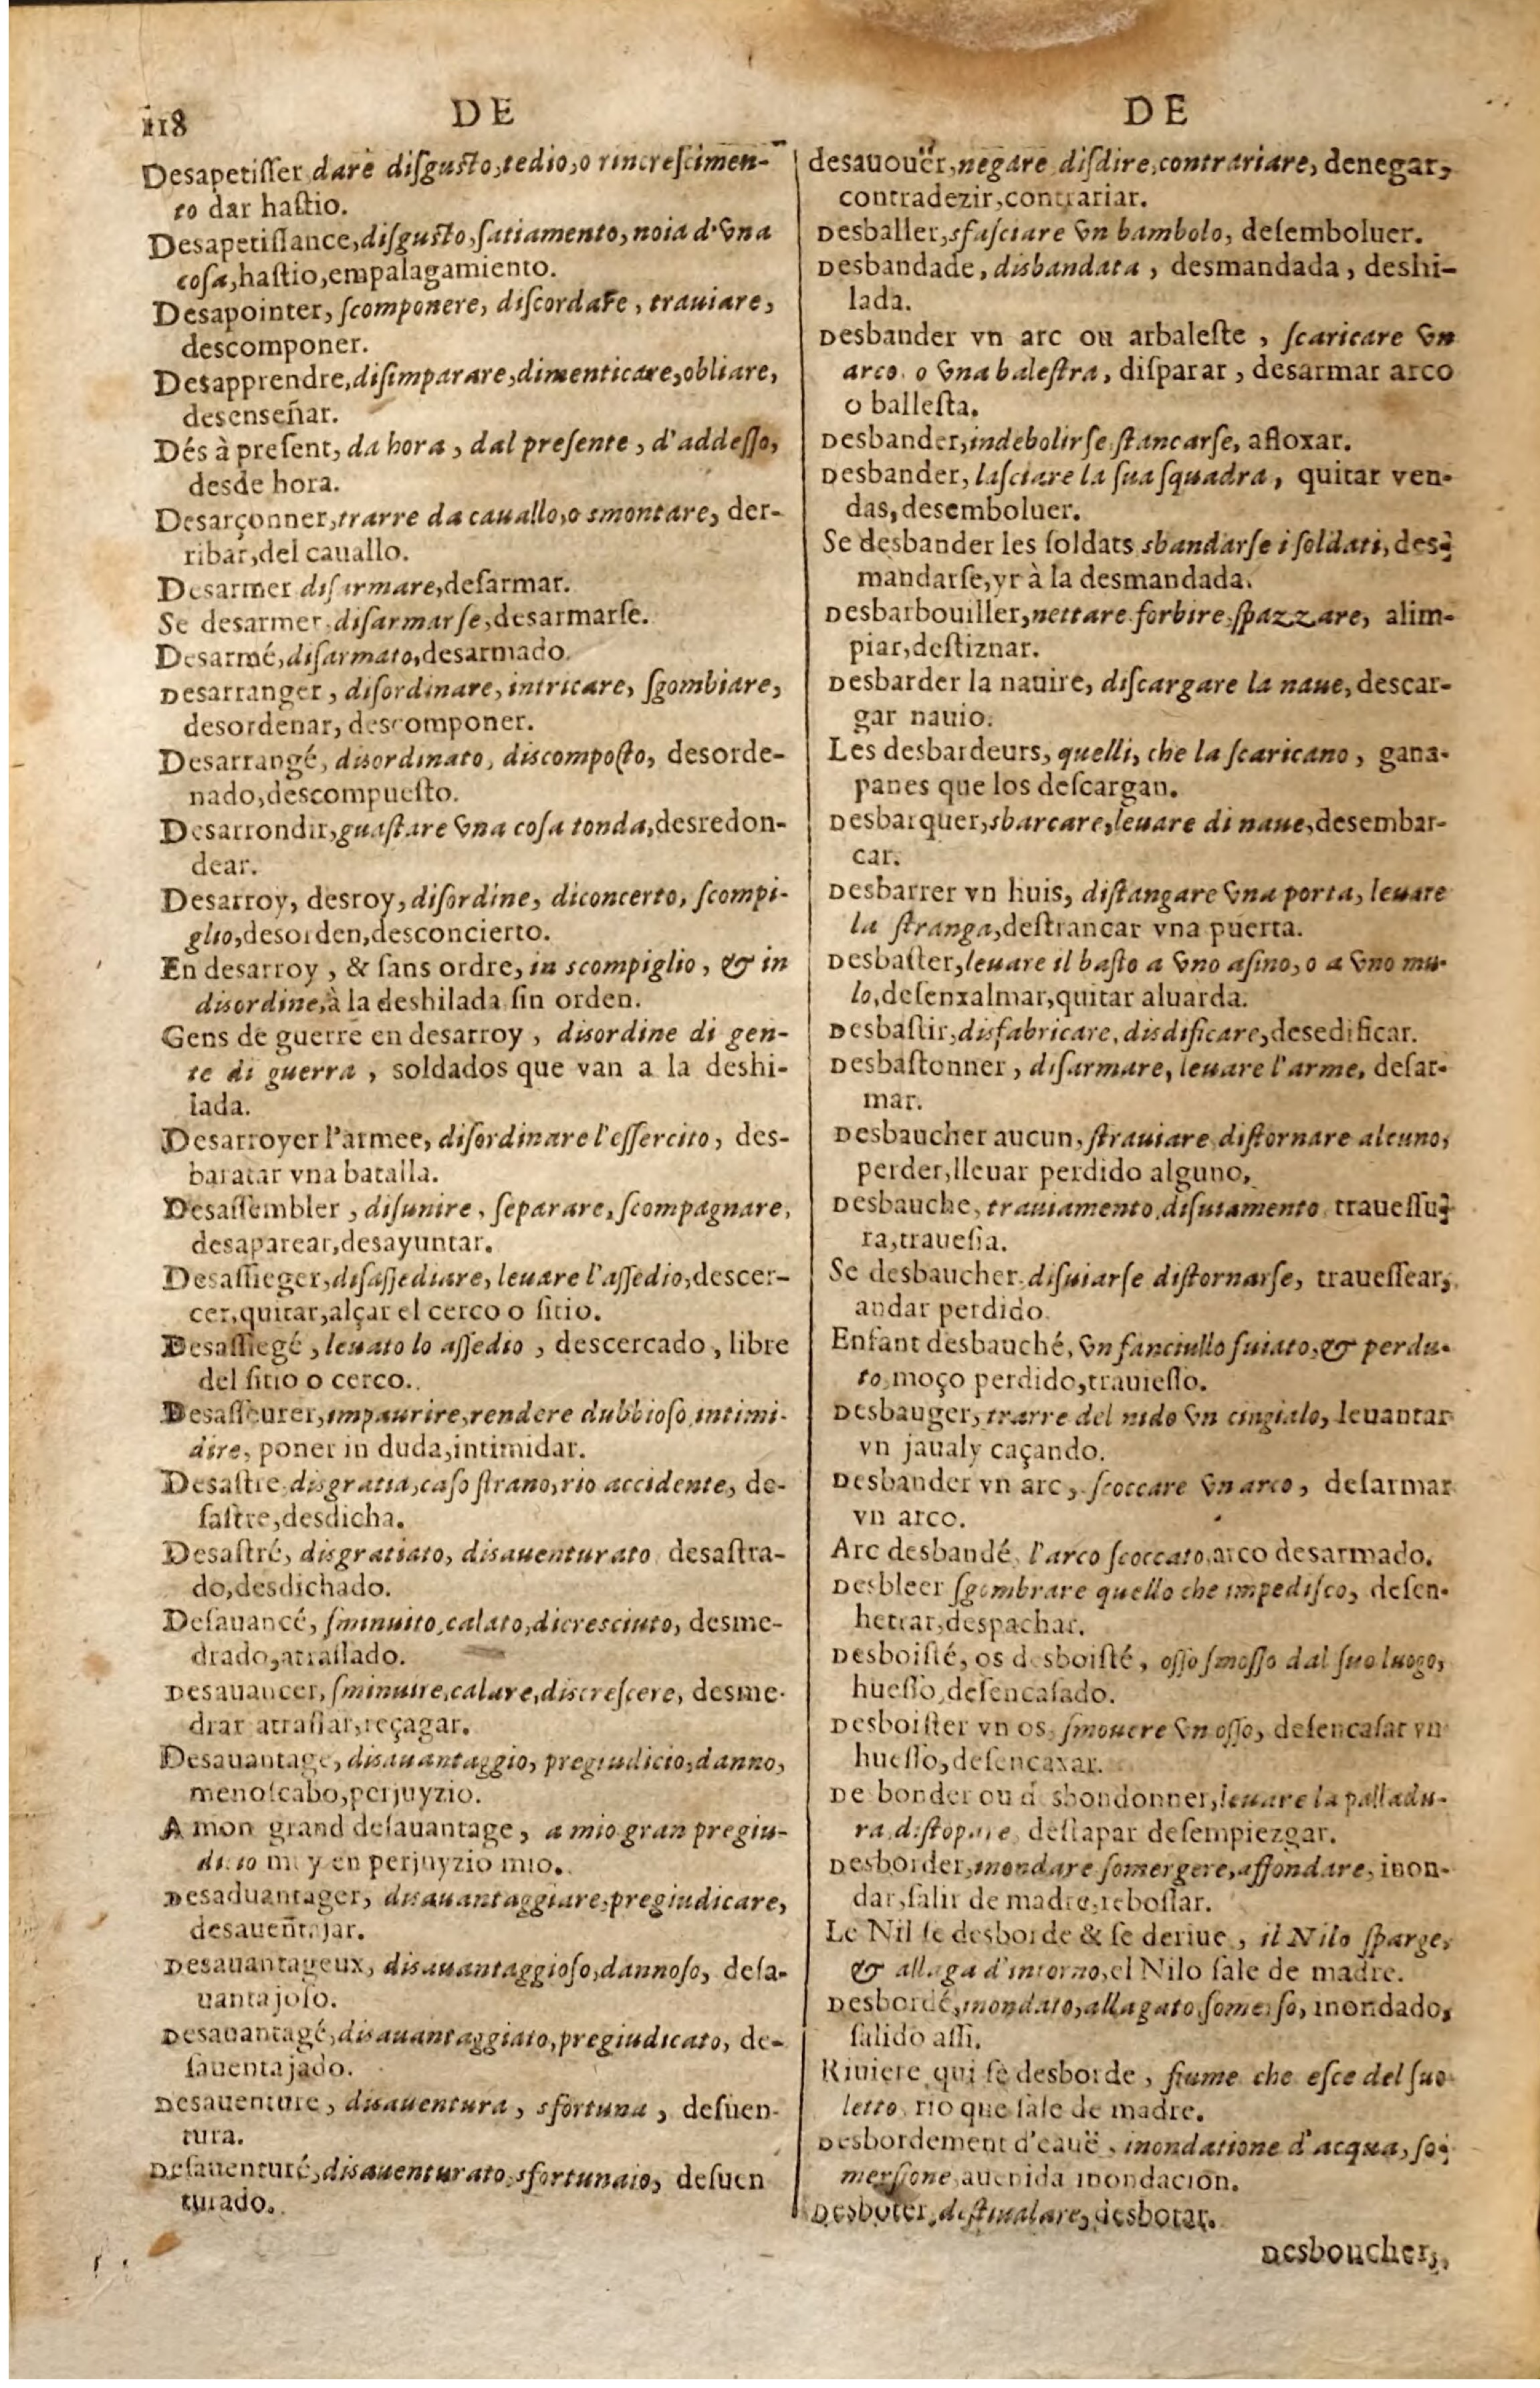 118
DE
DE
Desapetiſſer dare diſguſto, tedio, o rincreſcimen-
to dar haſtio.
Desapetiſſance, diſguſto, ſatiamento, noia d'vna
coſa, haſtio, empalagamiento.
Desapointer, ſcomponere, diſcordare, trauiare,
descomponer.
Desapprendre, diſimparare, dimenticare, obliare,
desenseñar.
Dés à preſent, da hora, dal preſente, d'addeſſo,
desde hora.
Desarçonner, trarre da cauallo, o smontare, der-
ribar, del cauallo.
Desarmer diſarmare, deſarmar.
Se desarmer, diſarmarſe, desarmarſe.
Desarmé, diſarmato, desarmado.
Desarranger, diſordinare, intricare, ſgombiare,
desordenar, descomponer.
Desarrangé, disordinato, discompoſto, desorde-
nado, descompueſto.
Desarrondir, guaſtare vna coſa tonda, desredon-
dear.
Desarroy, desroy, diſordine, diconcerto, ſcompi-
glio, desorden, desconcierto.
En desarroy, & ſans ordre, in scompiglio, & in
disordine, à la deshilada ſin orden.
Gens de guerre en desarroy, disordine di gen-
te di guerra, soldados que van a la deshi-
lada.
Desarroyer l'armee, diſordinare l'eſſercito, des-
baratar vna batalla.
Desaſſembler, diſunire, ſeparare, ſcompagnare,
desaparear, desayuntar.
Desaſſieger, diſaſſediare, leuare l'aſſedio, descer-
cer, quitar, alçar el cerco o ſitio.
Desaſſiegé, leuato lo aſſedio, descercado, libre
del ſitio o cerco.
Desaſſeurer, impaurire, rendere dubbioſo, intimi-
dire, poner in duda, intimidar.
Desaſtre, disgratia, caſo ſtrano, rio accidente, de-
ſaſtre, desdicha.
Desaſtré, disgratiato, disauenturato desaſtra-
do, desdichado.
Deſauancé, ſminuito, calato, dicresciuto, desme-
drado, atraſſado.
Desauancer, ſminuire, calare, discreſcere, desme-
drar atraſſar, reçagar.
Desauantage, disauantaggio, pregiudicio, danno,
menoſcabo, perjuyzio.
A mon grand deſauantage, a mio gran pregiu-
ditio muy en perjuyzio mio.
Desaduantager, disauantaggiare, pregiudicare,
desauentajar.
Desauantageux, disauantaggioſo, dannoſo, deſa-
uantajoſo.
Desauantagé, disauantaggiato, pregiudicato, de-
ſauentajado.
Desauenture, disauentura, sfortuna, deſuen-
tura.
Deſauenturé, disauenturato, sfortunato, deſuen
turado.
desauouër, negare, diſdire, contrariare, denegar,
contradezir, contrariar.
Desballer, sfaſciare vn bambolo, deſemboluer.
Desbandade, disbandata, desmandada, deshi-
lada.
Desbander vn arc ou arbaleſte, ſcaricare vn
arco o vna baleſtra, diſparar, desarmar arco
o balleſta.
Desbander, indebolirſe ſtancarſe, afloxar.
Desbander, laſciare la ſua ſquadra, quitar ven-
das, desemboluer.
Se desbander les ſoldats sbandarſe i ſoldati, des-
mandarſe, yr à la desmandada.
Desbarbouiller, nettare forbire, ſpazzare, alim-
piar, deſtiznar.
Desbarder la nauire, diſcargare la naue, descar-
gar nauio.
Les desbardeurs, quelli, che la ſcaricano, gana-
panes que los deſcargan.
Desbarquer, sbarcare, leuare di naue, desembar-
car.
Desbarrer vn huis, diſtangare vna porta, leuare
la ſtranga, deſtrancar vna puerta.
Desbaſter, leuare il baſto a vno aſino, o a vno mu-
lo, deſenxalmar, quitar aluarda.
Desbaſtir, disfabricare, disdificare, desedificar.
Desbaſtonner, diſarmare, leuare l'arme, deſar-
mar.
Desbaucher aucun, ſtrauiare diſtornare alcuno,
perder, lleuar perdido alguno,
Desbauche, trauiamento, diſuiamento traueſſu-
ra, traueſia.
Se desbaucher, diſuiarſe diſtornarſe, traueſſear,
andar perdido.
Enfant desbauché, vn fanciullo ſuiato, & perdu-
to, moço perdido, trauieſſo.
Desbauger, trarre del nido vn cingialo, leuantar
vn jaualy caçando.
Desbander vn arc, ſcoccare vn arco, deſarmar
vn arco.
Arc desbandé, l'arco ſcoccato, arco desarmado.
Desbleer ſgombrare quello che impediſco, deſen-
hetrar, despachar.
Desboiſté, os desboiſté, oſſo ſmoſſo dal ſuo luogo,
hueſſo, deſencaſado.
Desboiſter vn os, ſmouere vn oſſo, deſencaſar vn
hueſſo, deſencaxar.
De bonder ou d sbondonner, leuare la palladu-
ra, diſtopare, deſtapar deſempiezgar.
Desborder, inondare ſomergere, affondare, inon-
dar, ſalir de madre, reboſſar.
Le Nil ſe desborde & ſe deriue, il Nilo ſparge,
& allaga d'intorno, el Nilo ſale de madre.
Desbordé, inondato, allagato, ſomerſo, inondado,
ſalido aſſi.
Riuiere qui ſe desborde, fiume che eſce del ſuo
letto, rio que ſale de madre.
Desbordement d'eauë, inondatione d'acqua, ſo-
merſione, auenida inondacion.
Desboter, diſtiualare, desbotar.
Desboucher,